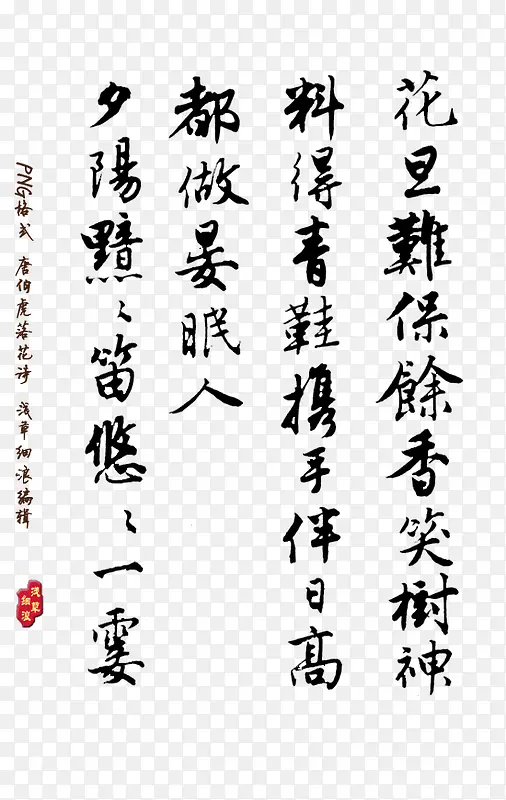 花旦難保餘香笑樹神
料得青鞋携手伴日高
都做晏眠人
夕陽黯〻笛悠〻一霎
PNG格式 唐伯虎落花诗 浅草细浪编辑
浅草
细浪